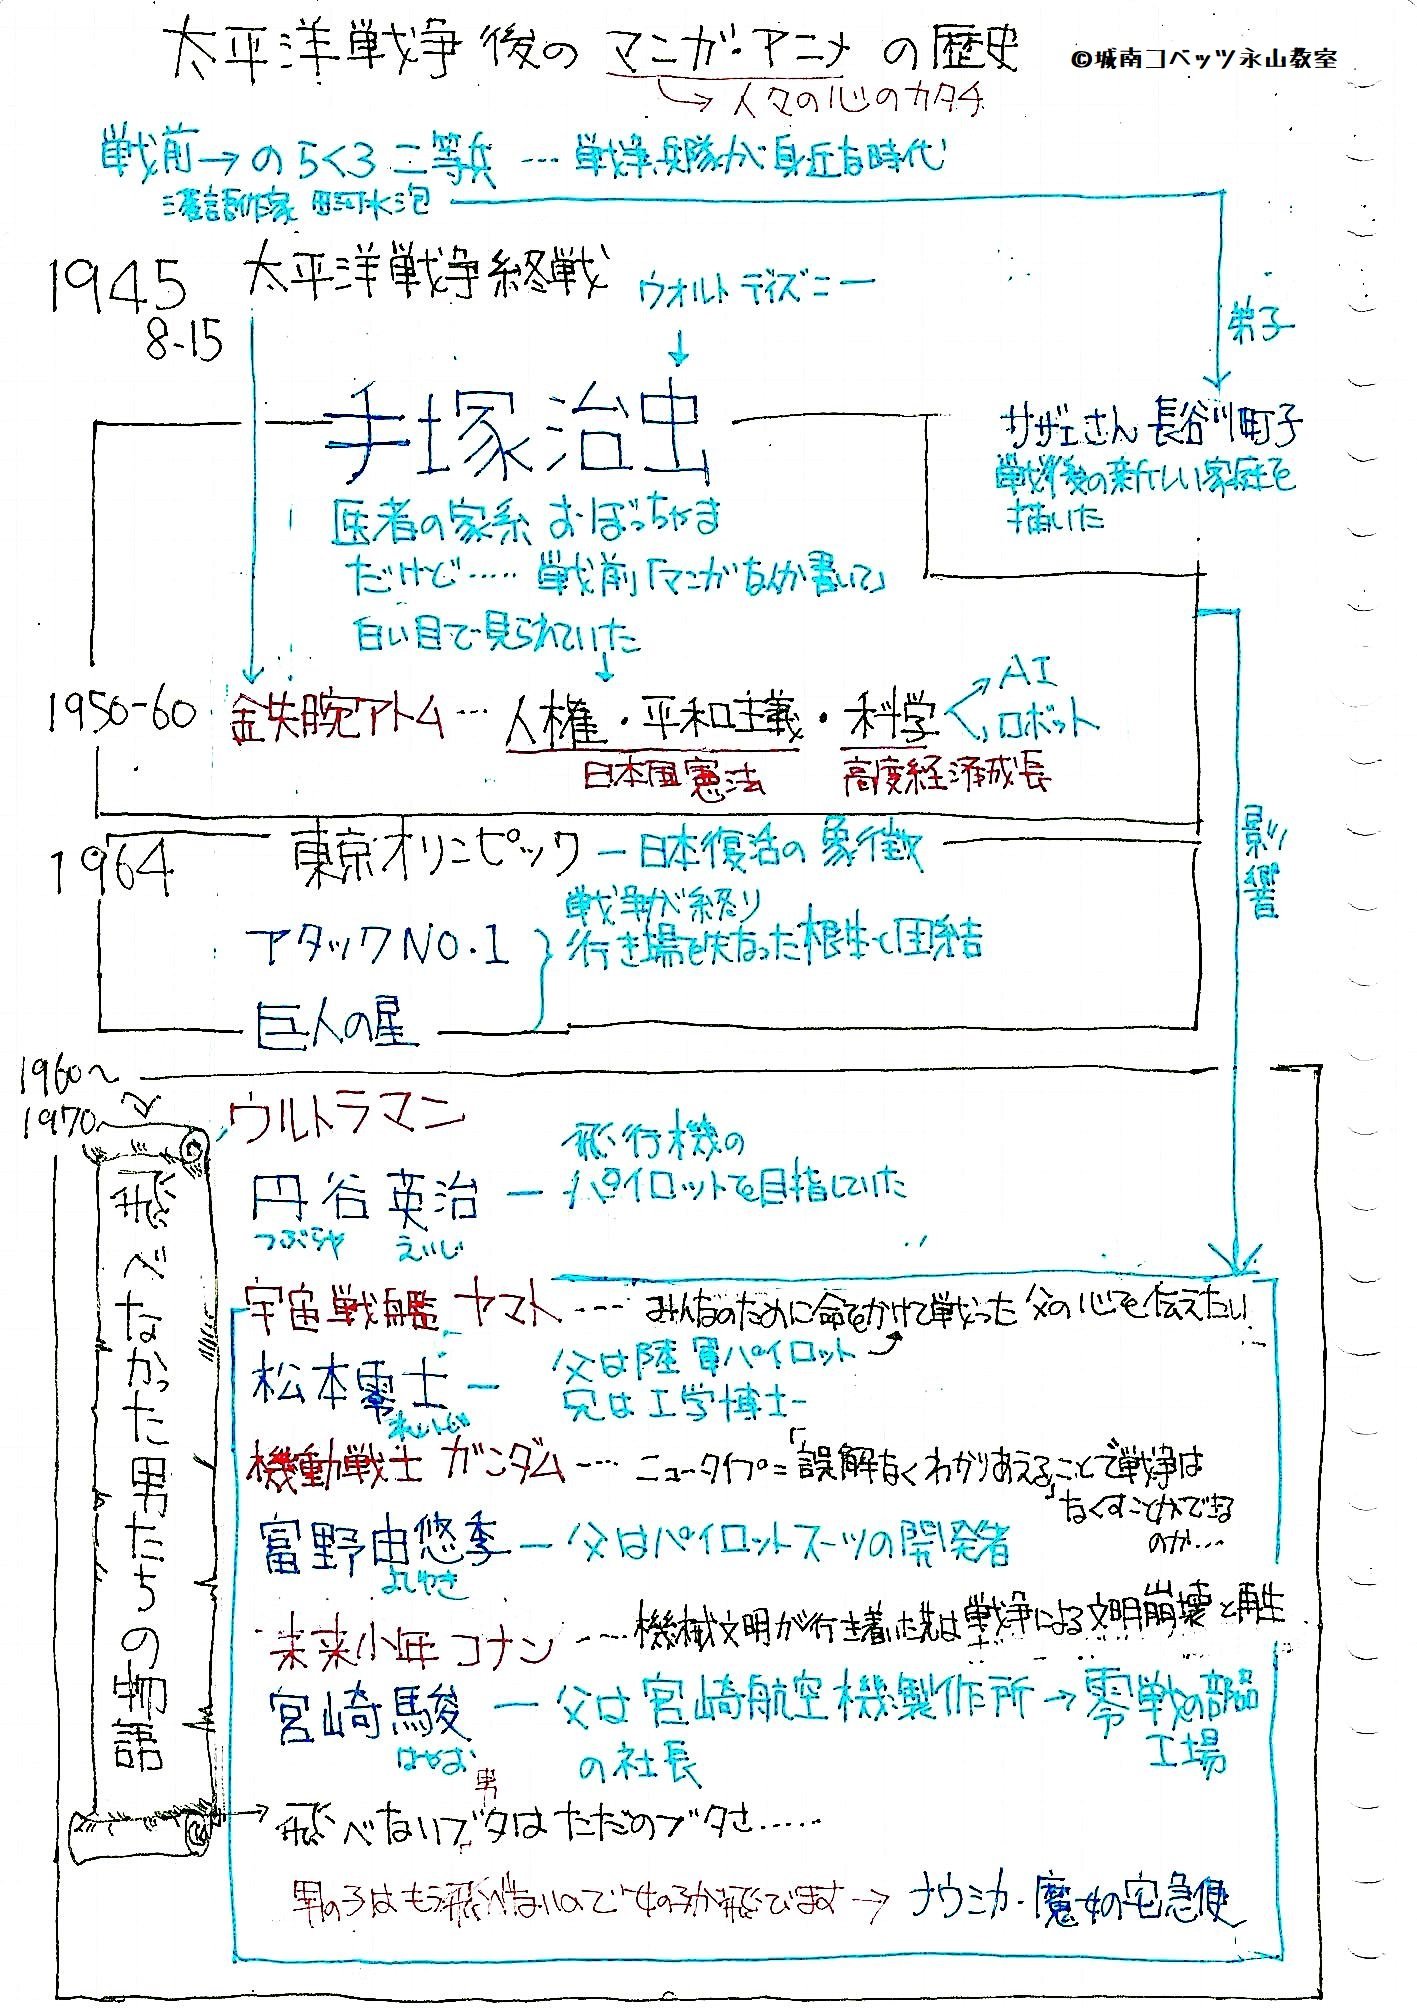 太平洋戦争後のマンガ・アニメの歴史
©城南コベッツ永山教室
→人々の心のカタチ
戦前→のらくろ二等兵…戦争兵隊が身近な時代
漫語作家 田河水泡
1945
8-15
太平洋戦争終戦
ウォルトディズニー
↓
弟子
手塚治虫
サザエさん 長谷川町子
戦後の新しい家庭を
描いた
医者の家系 おぼっちゃま
だけど…… 戦前「マンガなんか書いて」
白い目で見られていた
↓
1950-60 鉄腕アトム…人権・平和主義・科学
AI
ロボット
日本国憲法
高度経済成長
影響
1964 東京オリンピック―日本復活の象徴
戦争が終り
行き場を失なった根性と団結
アタックNO.1
巨人の星
1960~
1970~
飛べなかった男たちの物語
ウルトラマン
円谷英治―飛行機の
パイロットを目指していた
つぶらや えいじ
宇宙戦艦ヤマト…みんなのために命をかけて戦った父の心を伝えたい
松本零士―父は陸軍パイロット
兄は工学博士
れいじ
機動戦士ガンダム…ニュータイプ=「誤解なくわかりあえる」ことで戦争は
なくすことができる
のか…
富野由悠季―父はパイロットスーツの開発者
よしゆき
未来少年コナン…機械文明が行き着いた先は戦争による文明崩壊と再生
宮崎駿―父は宮崎航空機製作所→零戦の部品
の社長
工場
はやお
男
→飛べないブタはただのブタさ……
男の子はもう飛べないので女の子が飛びます→ナウシカ・魔女の宅急便